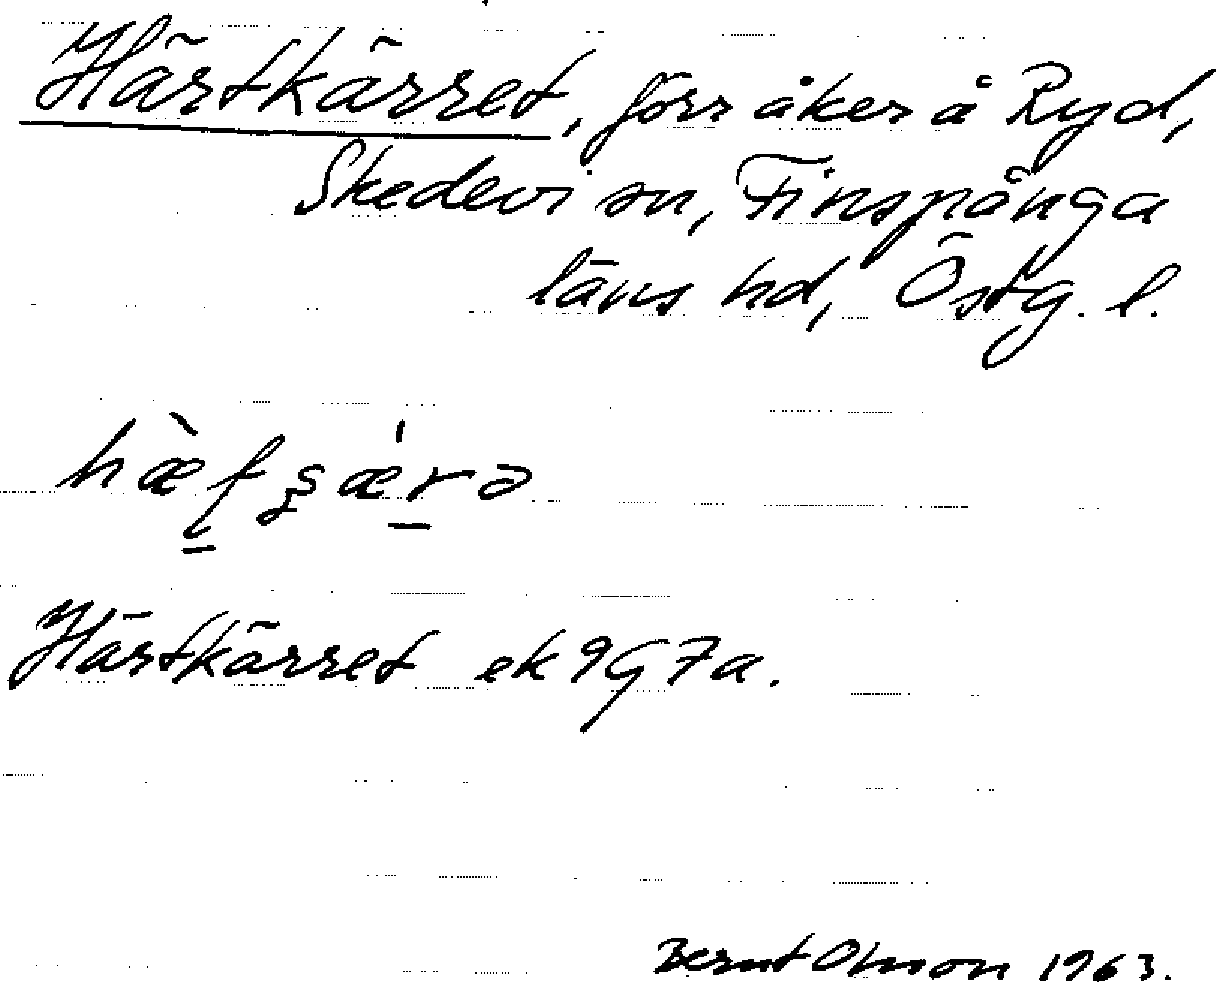 Härtkärret, förr åker å Ryd,
Skedevi sn, Finspånga
läns hd, Östg. l.
Härtkärret ek 9G7a.
Bernt Olsson 1963.